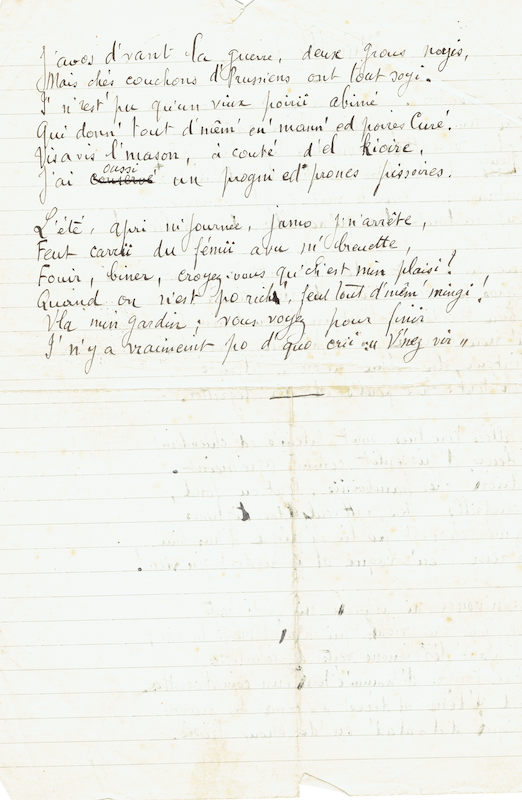 J'avos d'vant la guerre, deux grous noyis,
Mais chés couchons d'Prussiens ont tout soyi.
I n'rest' pu qu'un viux poirii abimé
Qui donn' tout d'mêm' en' mann' ed poires Curé.
Visavis l'mason, à couté d'el
J'ai aussi un progni ed prones pissoires.
L'été, apri m'journée, jamo j'm'arrête,
Feut carrii du fémii avu m'breuette,
Fouir, biner, croyez-vous qu'ch'est min plaisi!
Quand on n'est po rich', feut tout d'mêm' mingi!
V'la min gardin; vous voyez pour finir
I n'y a vraiment po d'quo crii "V'nez vir"